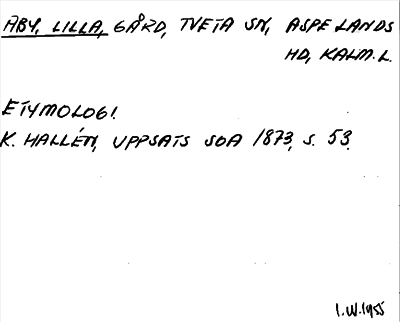 ÅBY, LILLA, GÅRD, TVETA SN, ASPELANDS
HD, KALM. L.
ETYMOLOGI.
K. HALLÉN, UPPSATS SOA 1873, S. 53.
I.W. 1955